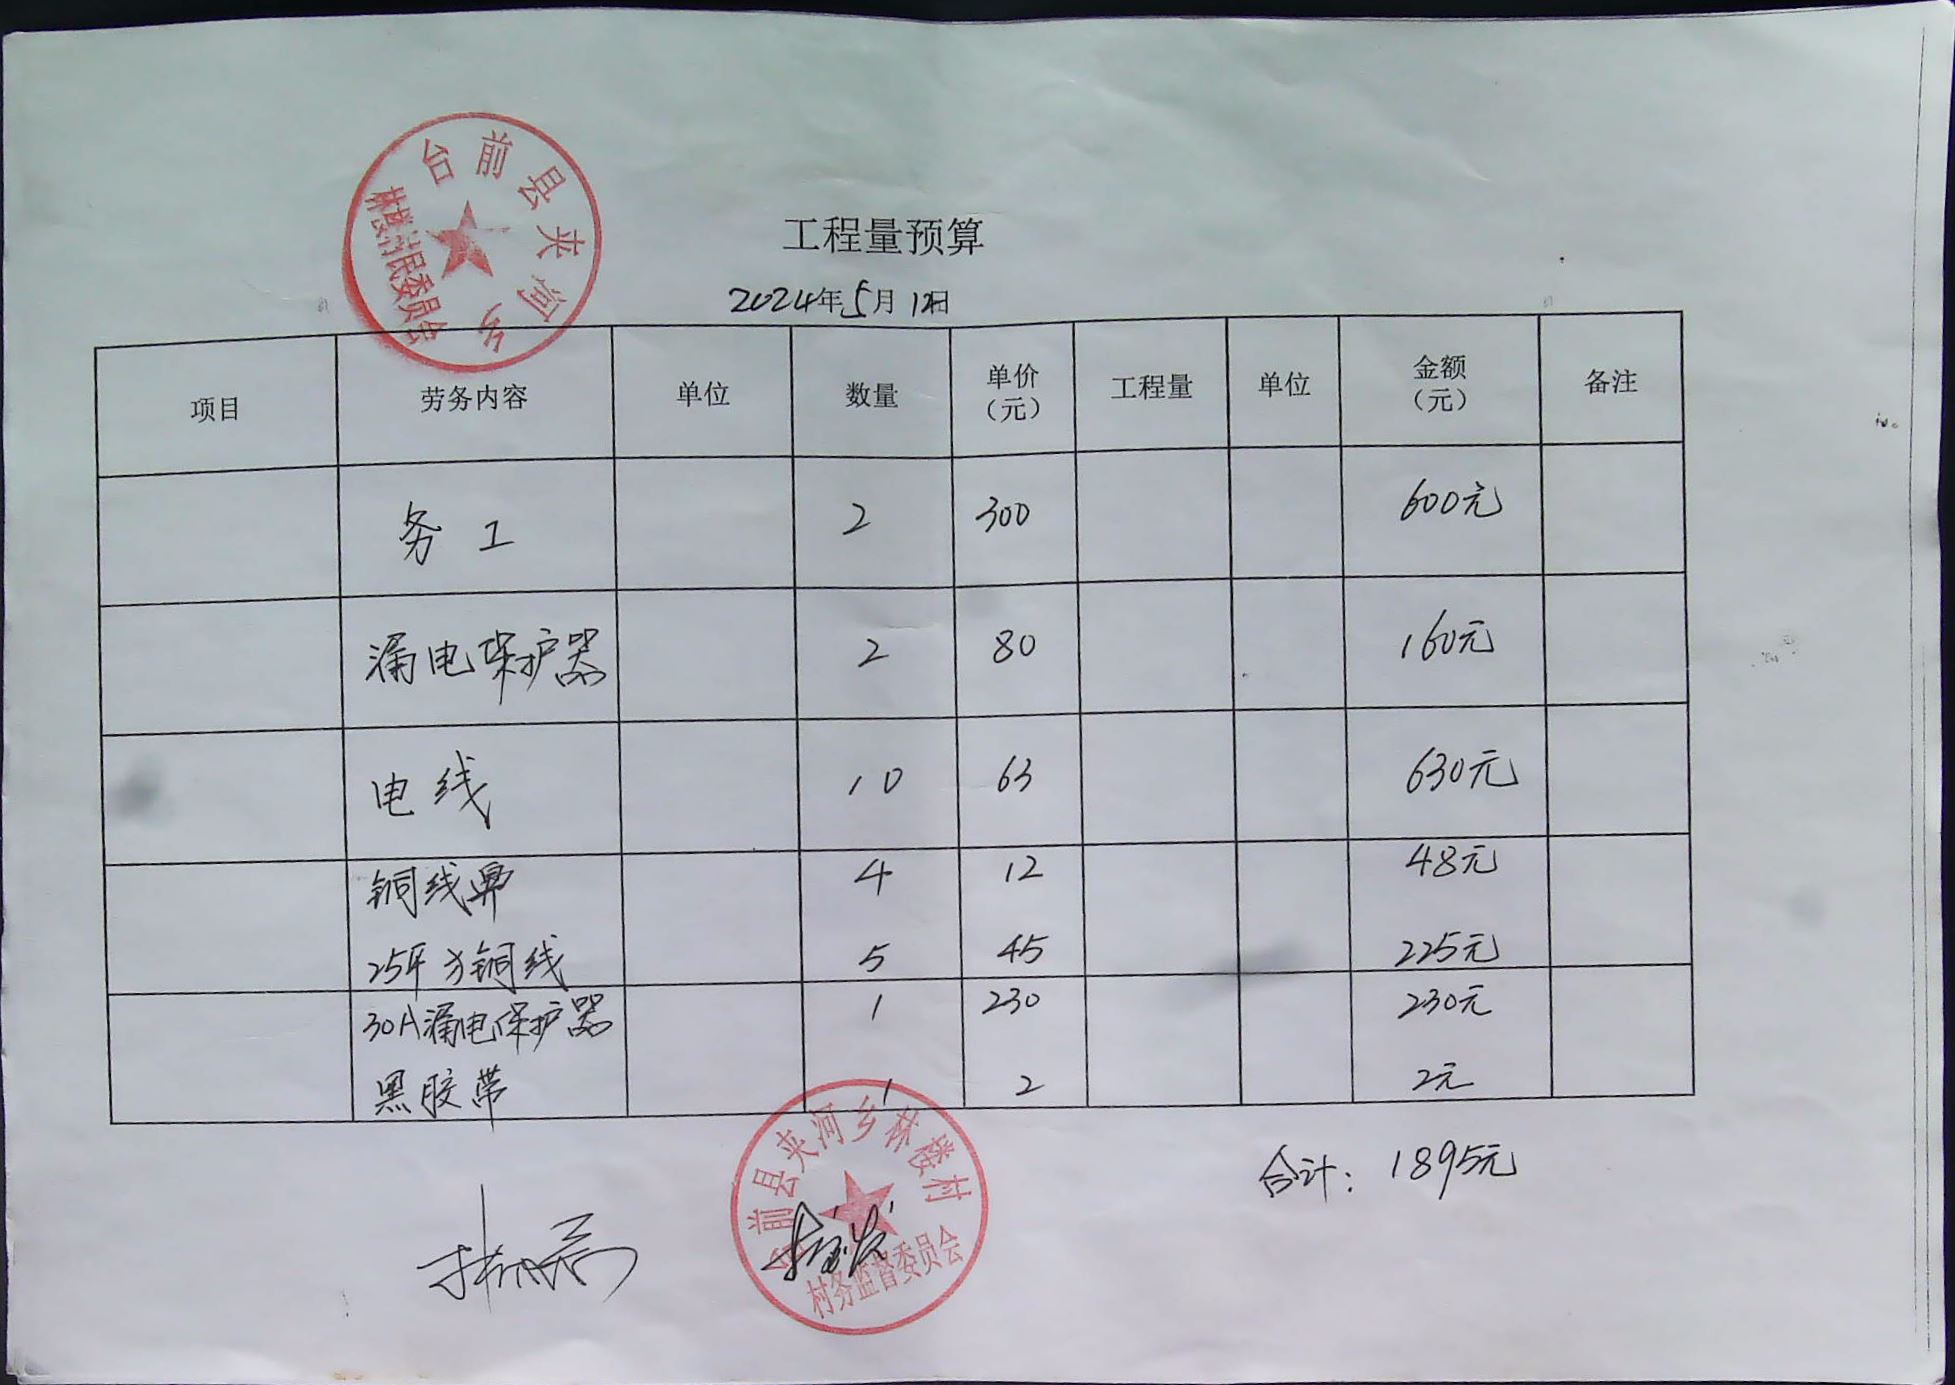 台前县夹河乡
林楼村村民委员会
工程量预算
2024年5月12日
项目 劳务内容 单位 数量 单价（元） 工程量 单位 金额（元） 备注
务工 2 300 600元
漏电保护器 2 80 160元
电线 10 63 630元
铜线鼻 4 12 48元
25平方铜线 5 45 225元
30A漏电保护器 1 230 230元
黑胶带 1 2 2元
合计：1895元
台前县夹河乡林楼村
村务监督委员会